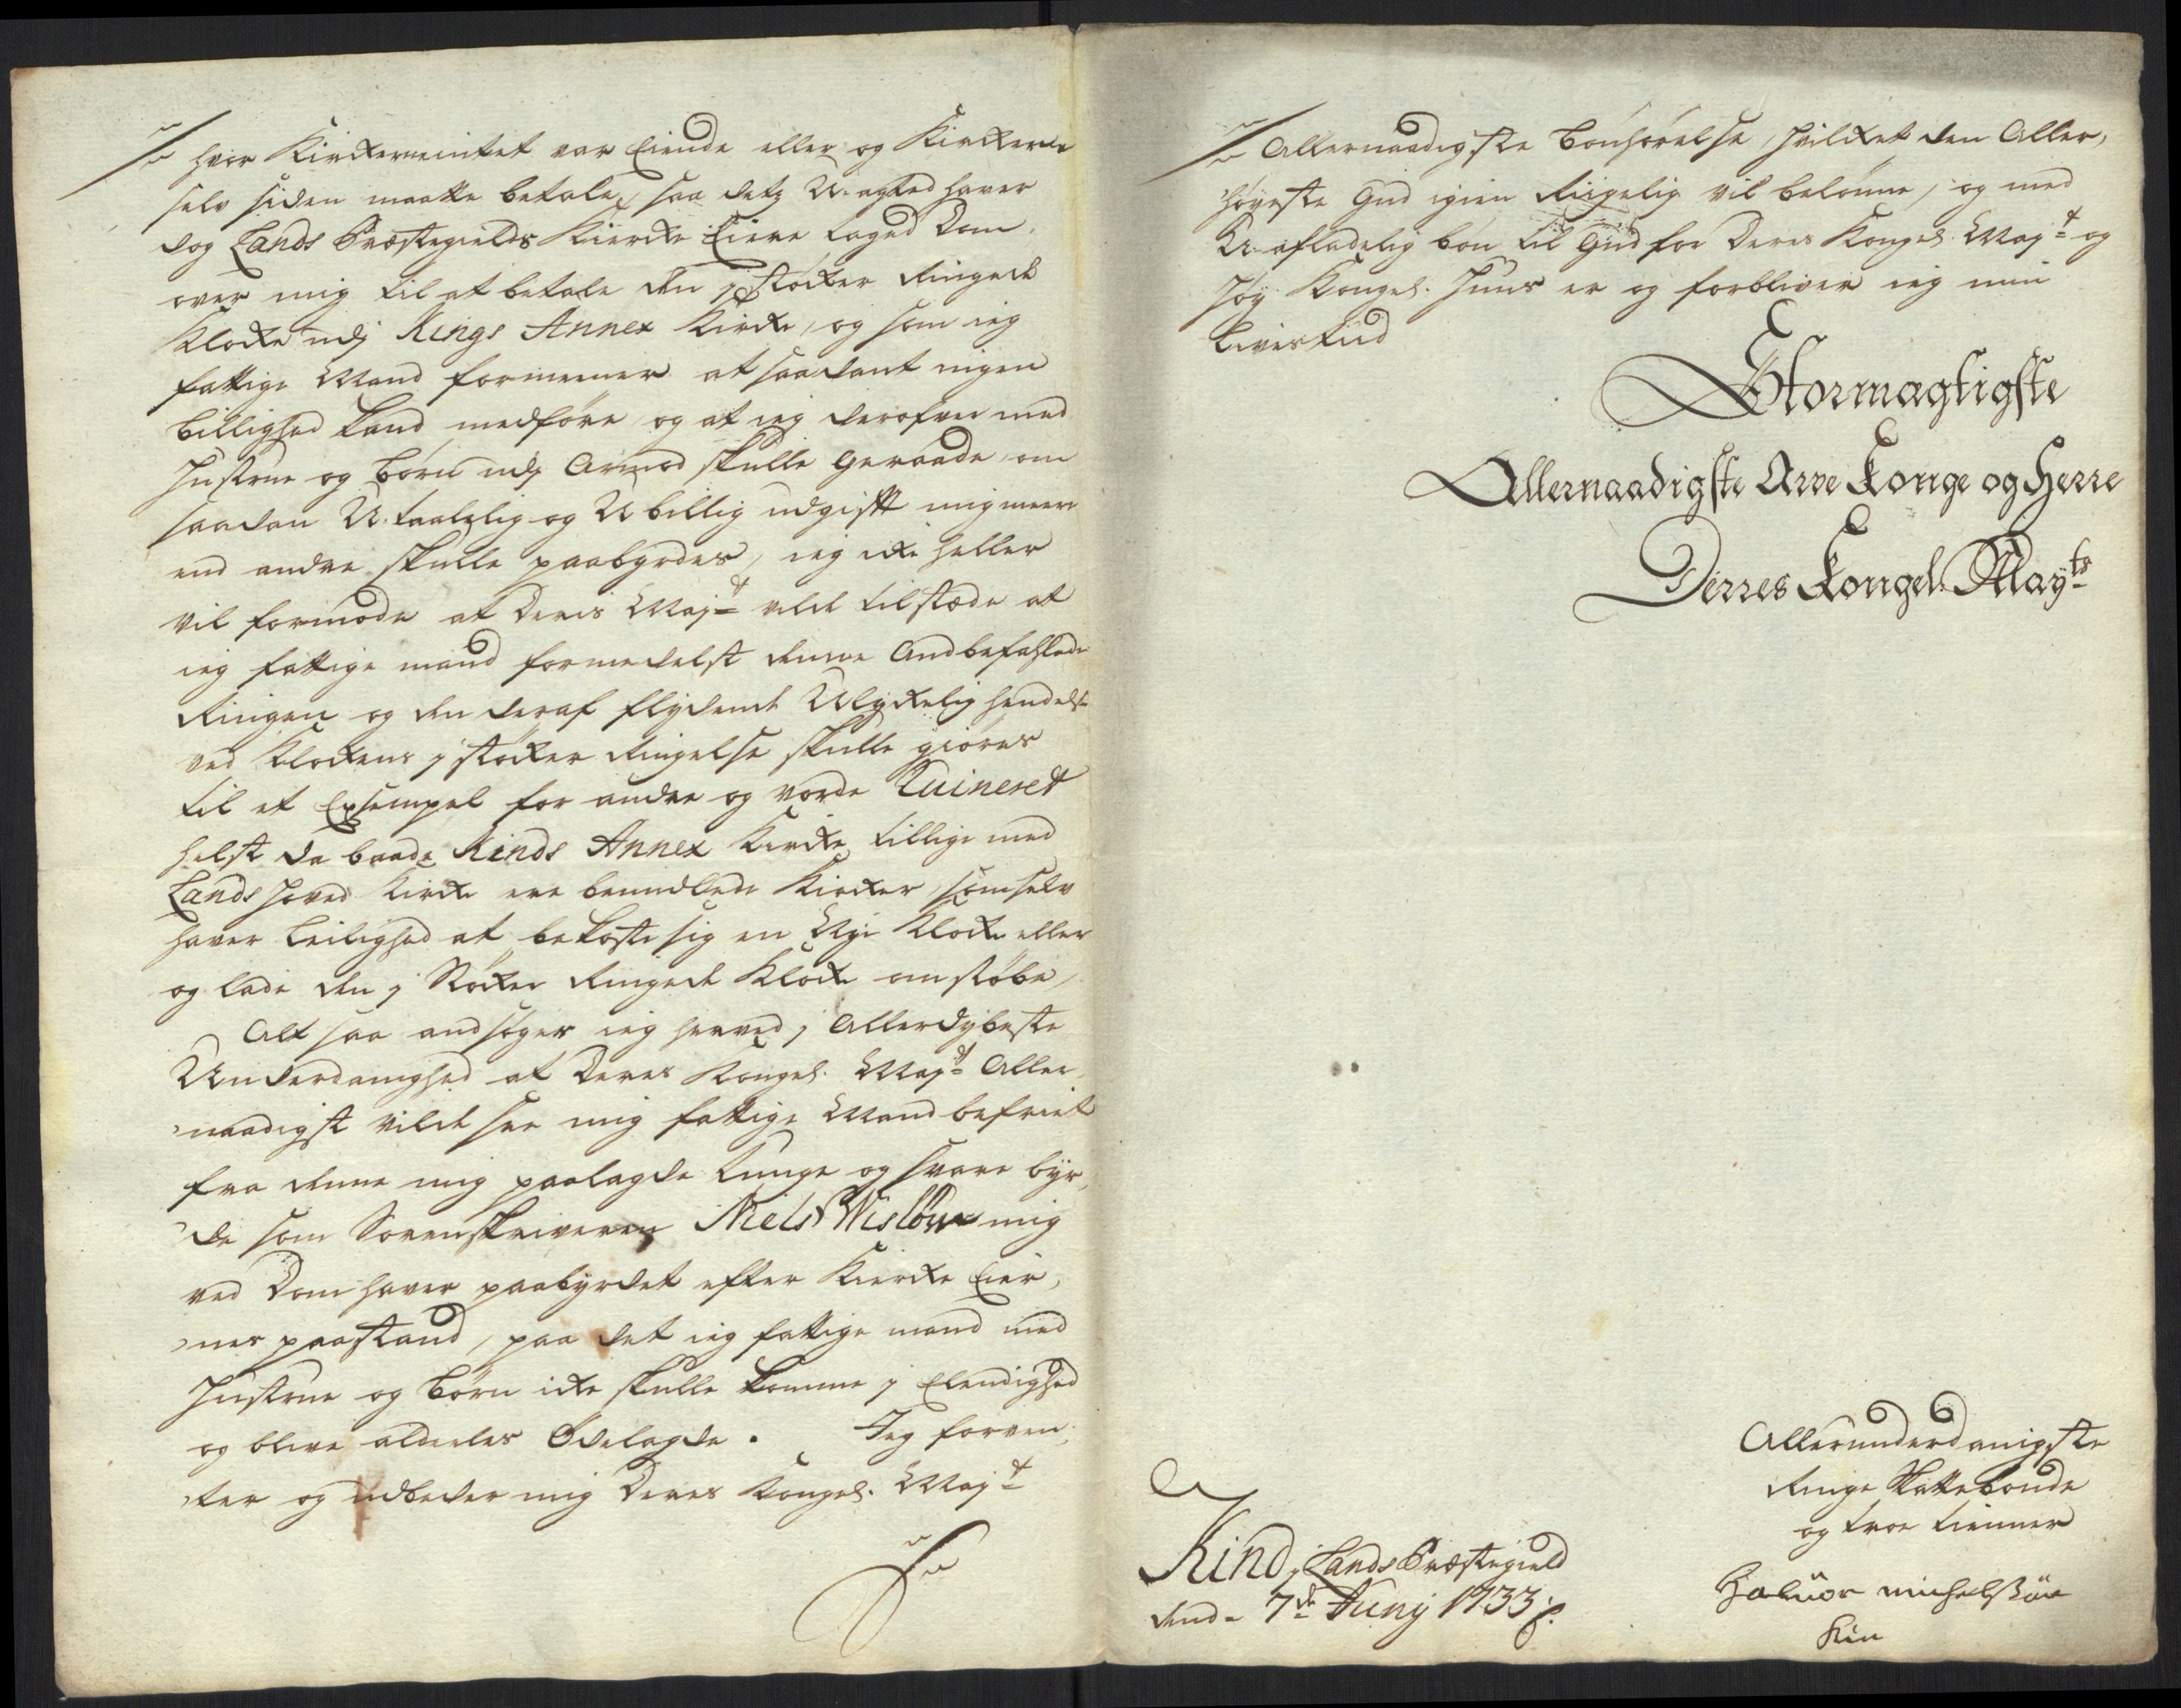 hvor Kirkerneintet var Eiende eller og Kirkerne
selv siden maatte betale, saa detz U-agted haver
dog Lands Præstegields Kiercke Eiere taged Dom
over mig til at betale den j støcker Ringede
Klocke udj Kings Annex Kircke, og som ieg
fattige Mand formeener at saadant ingen
billighed kand medføre og at ieg derofver med
Hustrue og børn udj Armod skulle geraade om
saadan U-taalelig og Ubillig udgift mig meere
end andre skulle paabyrdes, ieg icke heller
vil formode at Deris Majt vilde tilstæde at
ieg fattige mand formedelst denne Andbefahlede
Ringen og den deraf flydende Ulyckelig hendelse
ved Klockens j støcker Ringelse skulle giøres
til et Exsempel for andre og vorde Ruineret
helst da baade Kinds Annex Kircke tillige med
Lands Hoved Kircke ere bemidlede Kircker, som selv
haver Leilighed at bekoste sig en Nye Klocke eller
og lade den j Støcker Ringede Klocke omstøbe,
Alt saa andsøger ieg herved j Allerdybeste
Underdanighed at Deres Kongel. Majt Aller
naadigst vilde see mig fattige Mand befriet
fra denne mig paalagde tunge og svare byr,
de som Sorenskriveren Niels Wisløw mig
ved Dom haver paabyrdet efter Kiercke Eier,
nes paastand, paa det ieg fattige mand med
Hustrue og børn icke skulle komme j Elendighed
og blive aldeeles Ødelagde. Jeg forven,
ter og udbeder mig Deres Kongel. Majt
Allernaadigste bønhørelse, hvilcket den Aller,
høyeste Gud igien Riigelig vil belønne, og med
U-afladelig bøn til Gud for Deres Kongel. Majt og
Høy Kongel. Huus er og forbliver ieg min
Livis tiid
Stormagtigste
Allernaadigste Arve Konge og Herre
Derres Kongel. Mayts
Allerunderdanigste
Ringe Skattebonde
og troe tienner
Kind j Lands Præstegield
dend 7de Junij 1733
Haluor michelsßøn
Kin